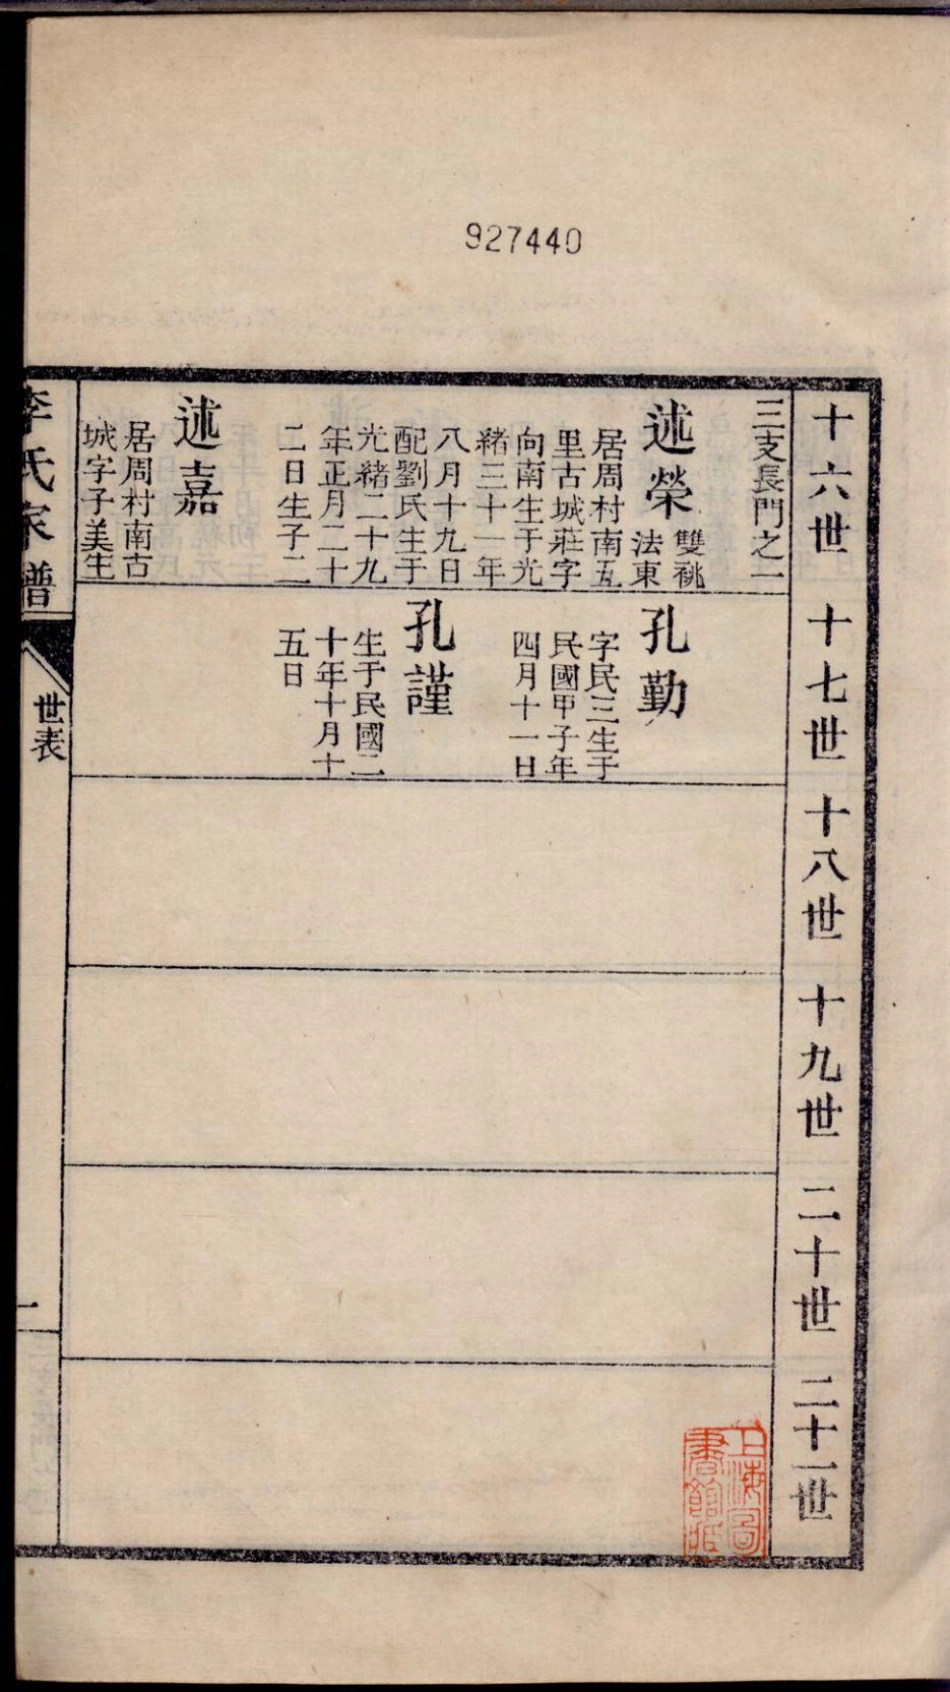 927440
十六世
十七世
十八世
十九世
二十世
二十一世
三支長門之一
述榮
雙祧
法東
居周村南五
里古城莊字
向南生于光
緒三十一年
八月十九日
配劉氏生于
光緒二十九
年正月二十
二日生子二
述嘉
居周村南古
城字子美生
孔勤
字民三生于
民國甲子年
四月十一日
孔謹
生于民國二
十年十月十
五日
李氏家譜
世表
一
上海圖
書館藏